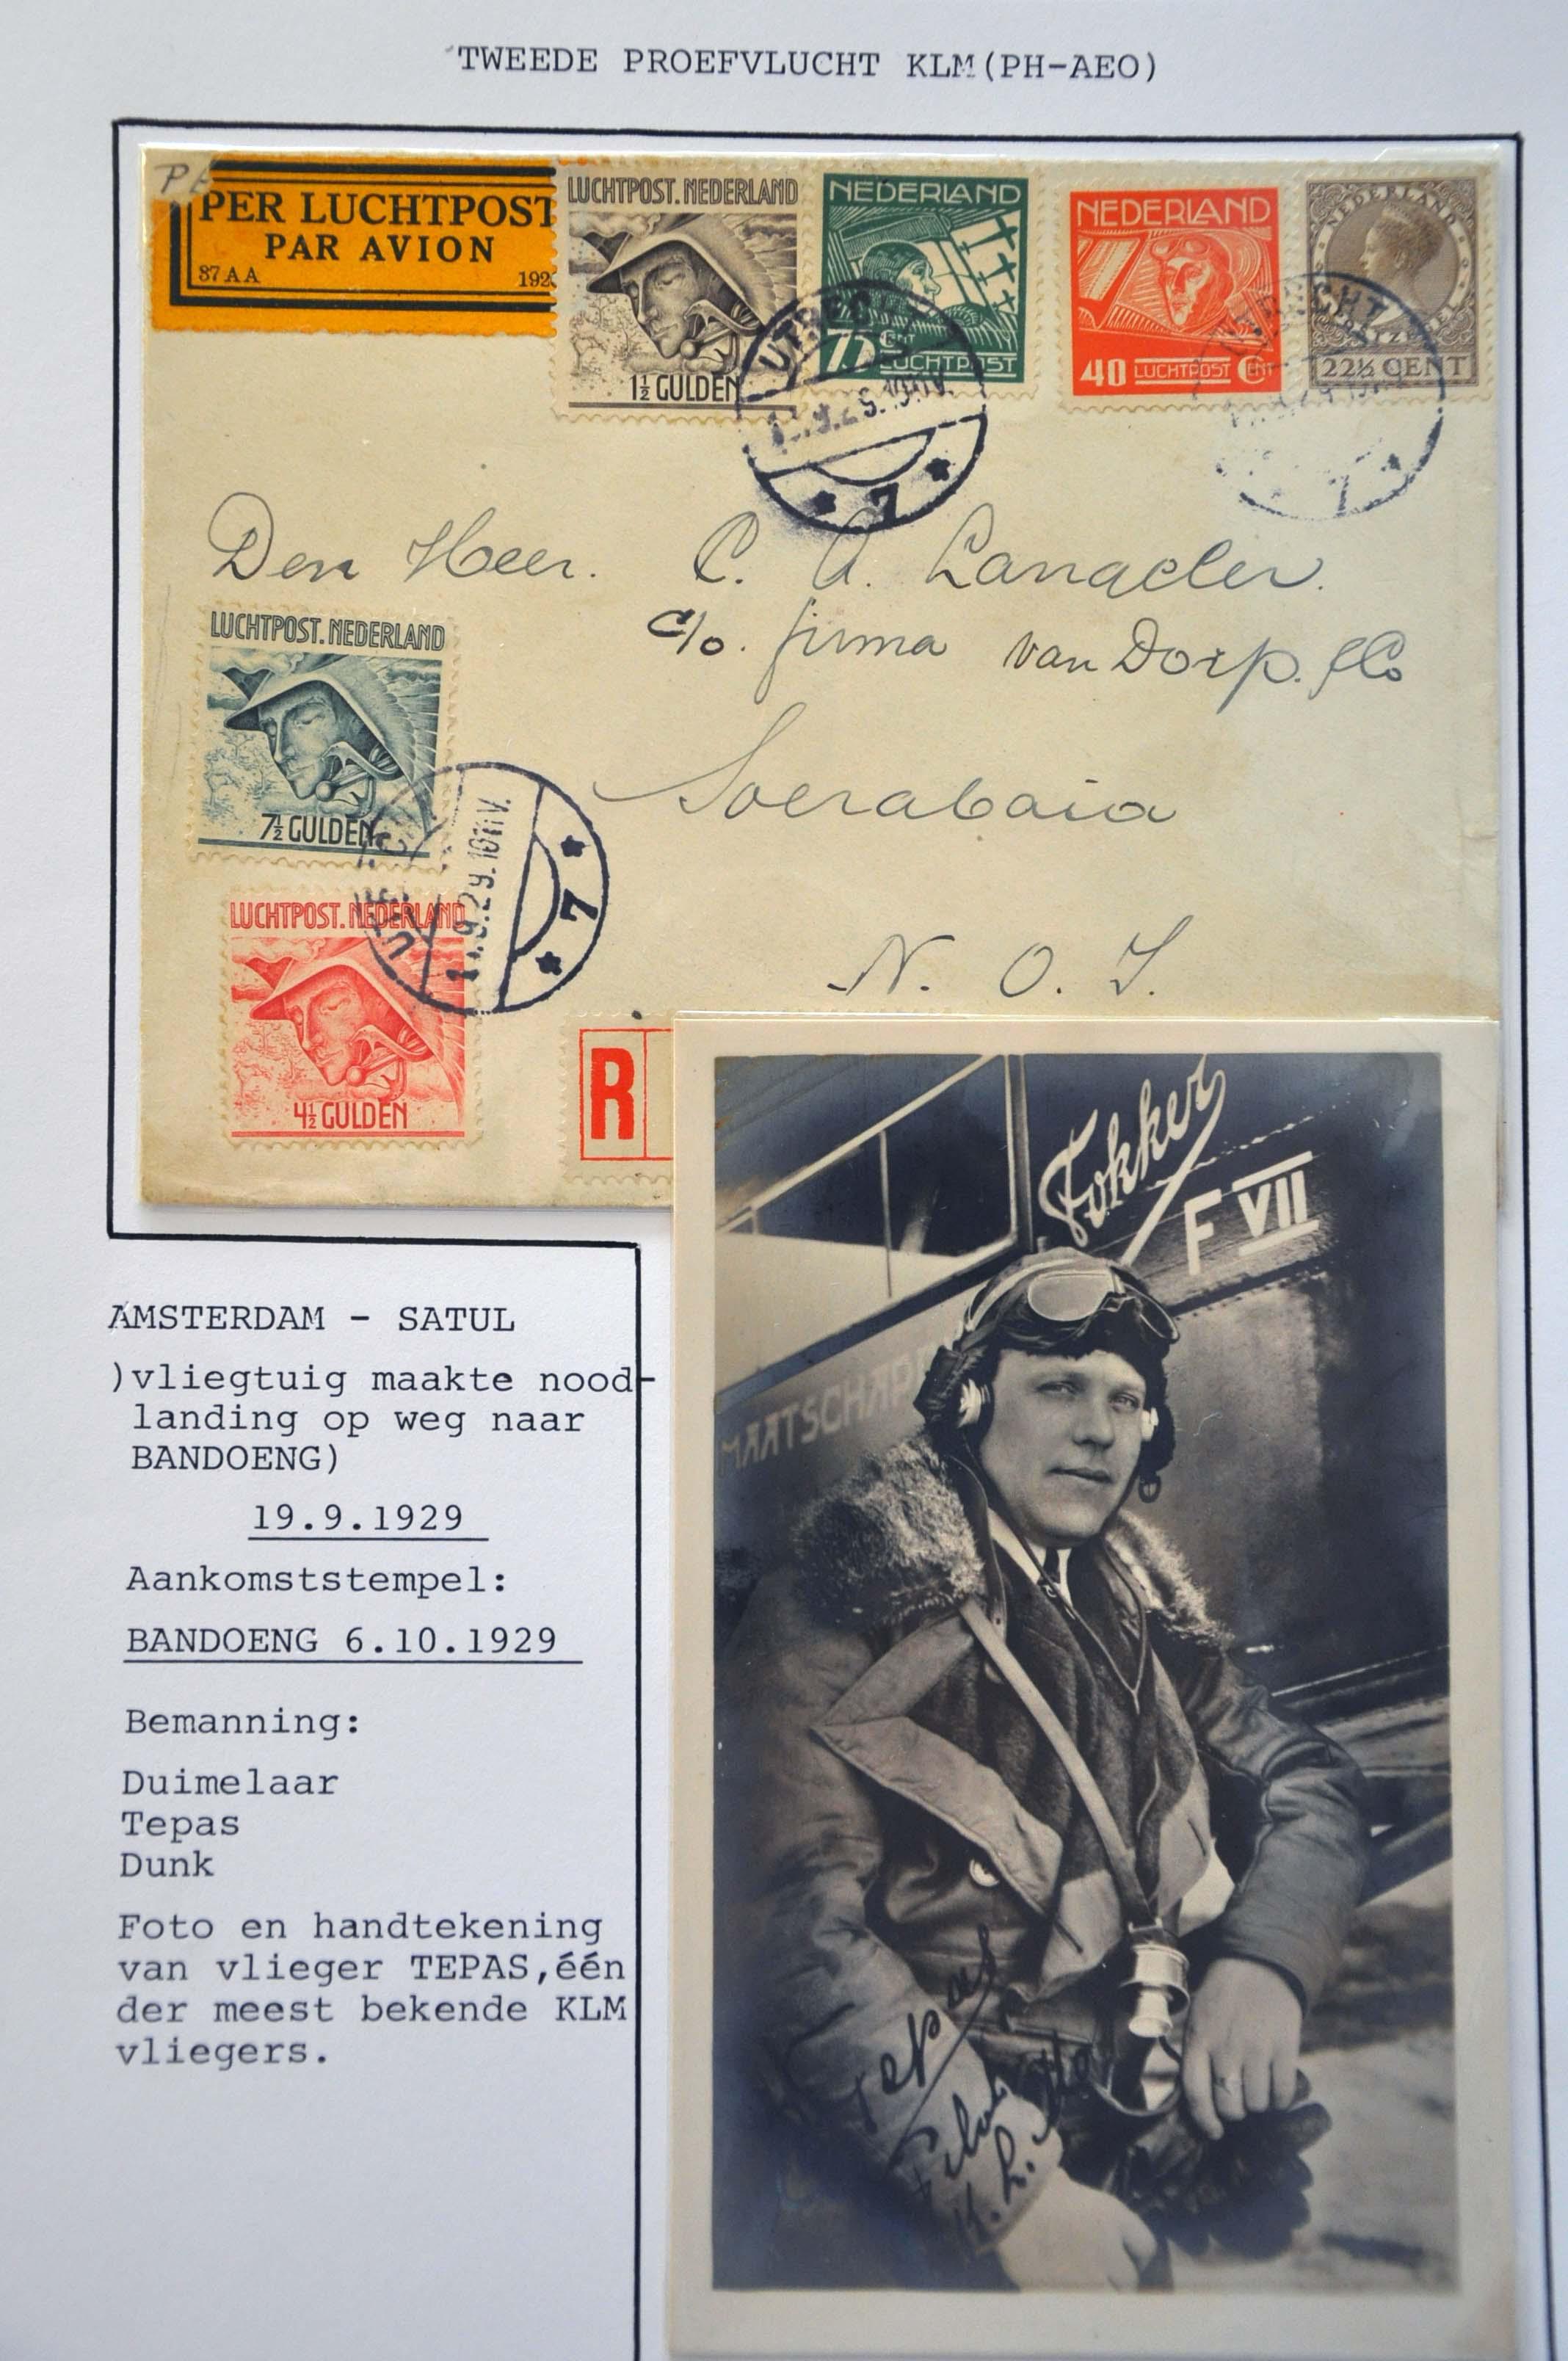 TWEEDE PROEFVLUCHT KLM(PH-AEO)
PER LUCHTPOST
PAR AVION
37 AA
LUCHTPOST. NEDERLAND
1½ GULDEN
NEDERLAND
75 CENT
LUCHTPOST
NEDERLAND
40 LUCHTPOST CENT
NEDERLAND
22½ CENT
7
7
Den Heer. C. A.
c/o. firma van Dorp. & Co
Soerabaia
N. O. I.
LUCHTPOST. NEDERLAND
7½ GULDEN
9.29.
7
LUCHTPOST. NEDERLAND
4½ GULDEN
R
Fokker
F VII
MAATSCHAPP
Tepas
Piloot
K. L. M.
AMSTERDAM - SATUL
)vliegtuig maakte nood-
landing op weg naar
BANDOENG)
19.9.1929
Aankomststempel:
BANDOENG 6.10.1929
Bemanning:
Duimelaar
Tepas
Dunk
Foto en handtekening
van vlieger TEPAS,één
der meest bekende KLM
vliegers.